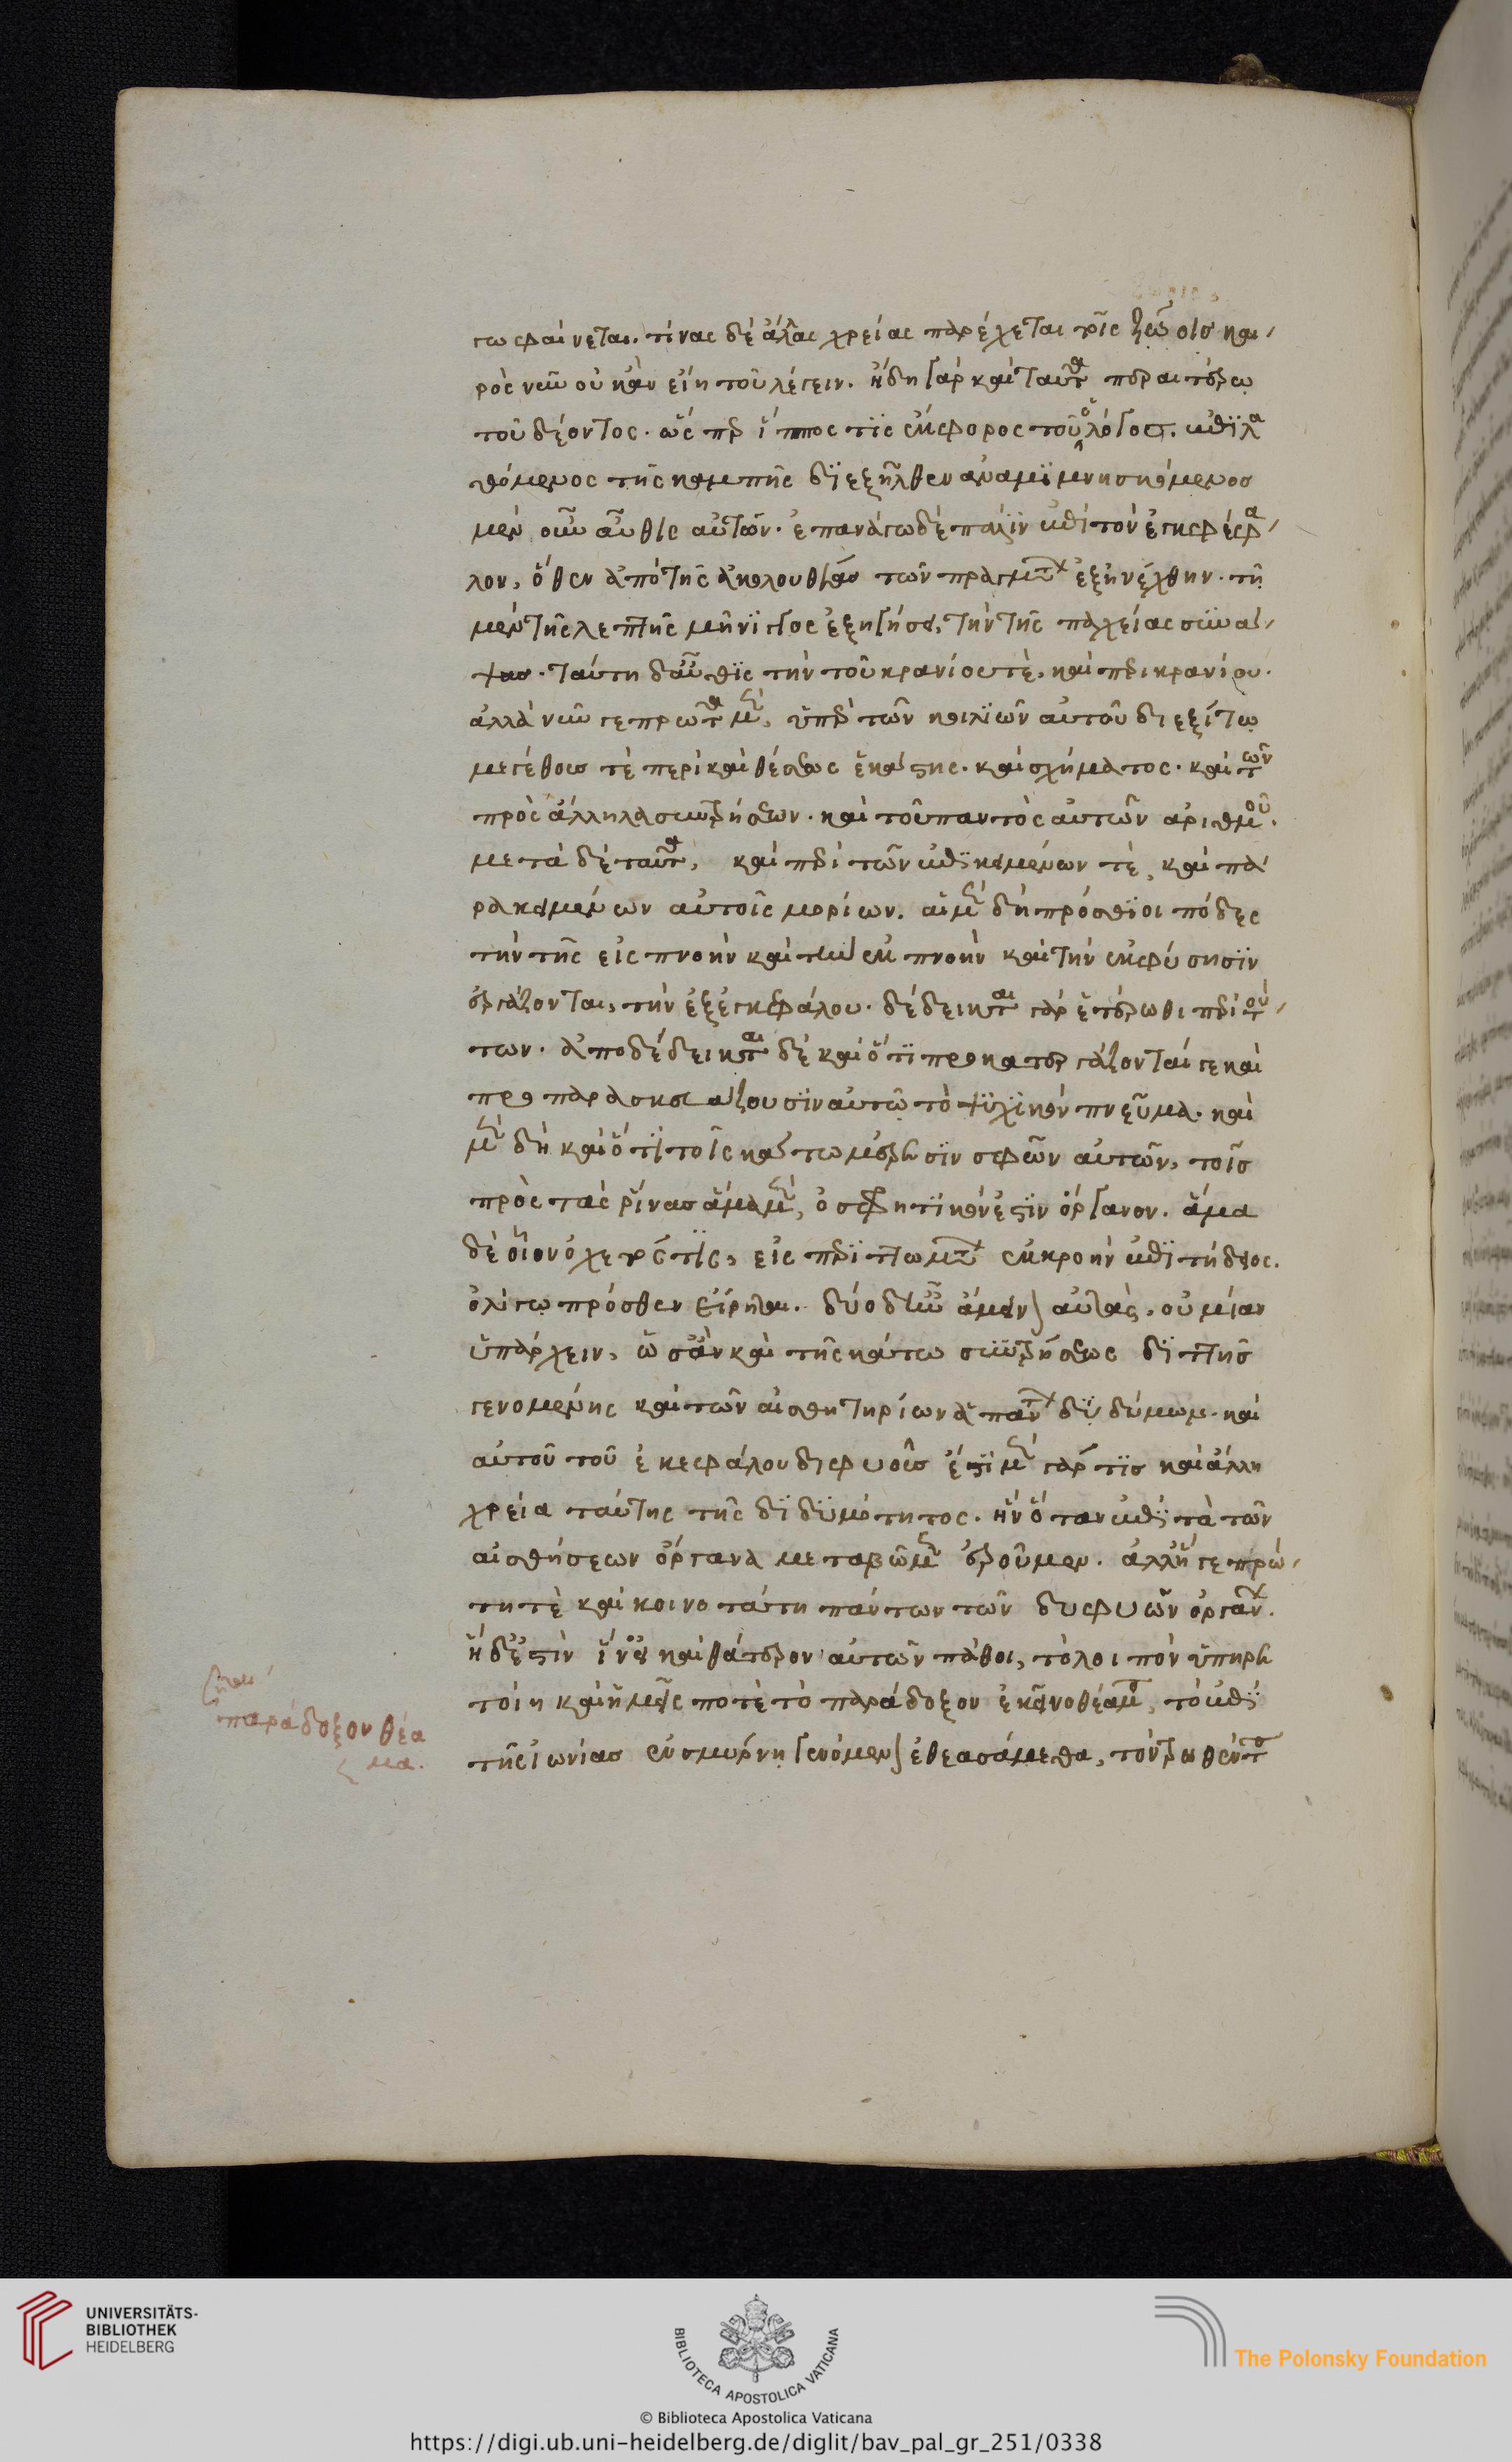 γω φαίνεται. τίνας δὲ ἄλλας χρείας παρέχεται τοῖς ζώοις και
ρὸς νῦν οὐκ ἂν εἴη τοῦ λέγειν. ἤδη γὰρ καὶ ταῦτα περαιτέρω
τοῦ δέοντος. ὥσπερ ἵππος τὶς ἔκφορος τοῦ ὁ λόγος. ἐπιλα
θόμενος τῆς καμπῆς διεξῆλθεν ἀναμιμνησκόμενος
μὲν οὖν αὖθις αὐτῶν. ἐπανάγω δὲ πάλιν ἐπὶ τὸν ἐγκέφα
λον, ὅθεν ἀπὸ τῆς ἀκολουθίας τῶν πραγμάτων ἐξηνέχθην. τῆ
μὲν τῆς λεπτῆς μήνιγγος ἐξηγήσει, τὴν τῆς παχείας συνά
ψας. ταύτη δ' αὖθις τὴν τοῦ κρανίου τὲ, καὶ περικρανίου.
ἀλλὰ νῦν γε πρῶτα μὲν, ὑπὲρ τῶν κοιλιῶν αὐτοῦ διεξίτω
μεγέθους τὲ περὶ καὶ θέσεως ἑκάστης. καὶ σχήματος. καὶ τῶν
πρὸς ἀλλήλας συντρήσεων. καὶ τοῦ παντὸς αὐτῶν ἀριθμοῦ.
μετὰ δὲ ταῦτα, καὶ περὶ τῶν ἐπικειμένων τὲ, καὶ πα
ρακειμένων αὐτοῖς μορίων. αἱ μὲν δὴ πρόσθιοι πόδες
τὴν τῆς εἰσπνοὴν καὶ τὴν ἐκπνοὴν καὶ τὴν ἐκφύσησιν
ἐργάζονται, τὴν ἐξ ἐγκεφάλου. δέδεικται γὰρ ἑτέρωθι περὶ τού
των. ἀποδέδεικται δὲ καὶ ὅτι προκατεργάζονταί γε καὶ
προπαρασκευάζουσιν αὐτῶ τὸ ψυχικὸν πνεῦμα. καὶ
μὲν δὴ καὶ ὅτι τοῖς κάτω μέρεσιν σφῶν αὐτῶν, τοῖς
πρὸς τὰς ῥῖνας ἅμα μὲν, ὀσφρητικόν ἐστιν ὄργανον. ἅμα
δὲ οἷον ὀχετός τις, εἰς περιττωμάτων ἐκροὴν ἐπιτήδειος.
ὀλίγω πρόσθεν εἴρηται. δύο δ' ἦν ἄμεινον αὐτὰς, οὐ μίαν
ὑπάρχειν, ὡς ἂν καὶ τῆς κάτω συντρήσεως διττῆς
γενομένης καὶ τῶν αἰσθητηρίων ἁπάντων διδύμων. καὶ
αὐτοῦ τοῦ ἐκεφάλου διφυοῦς ἔστι μὲν γὰρ τὶς καὶ ἄλλη
χρεία ταύτης τῆς διδυμότητος. ἣν ὅταν ἐπὶ τὰ τῶν
αἰσθήσεων ὄργανα μεταβῶμεν ἐροῦμεν. ἀλλ' ἥ γε πρώ
τη τὲ καὶ κοινοτάτη πάντων τῶν δυφυῶν ὀργάνων.
ἥδ' ἐστὶν ἵν' εἰ καὶ θάτερον αὐτῶν πάθοι, τὸ λοιπὸν ὑπηρε
τοίη καὶ ἡμεῖς ποτὲ τὸ παράδοξον ἐκεῖνο θέαμα, τὸ ἐπὶ
τῆς ἰωνίας ἐν σμύρνη γενόμενον ἐθεασάμεθα, τὸν τρωθέντα
παράδοξον θέα
μα.
UNIVERSITÄTS-
BIBLIOTHEK
HEIDELBERG
BIBLIOTECA APOSTOLICA VATICANA
The Polonsky Foundation
© Biblioteca Apostolica Vaticana
https://digi.ub.uni-heidelberg.de/diglit/bav_pal_gr_251/0338